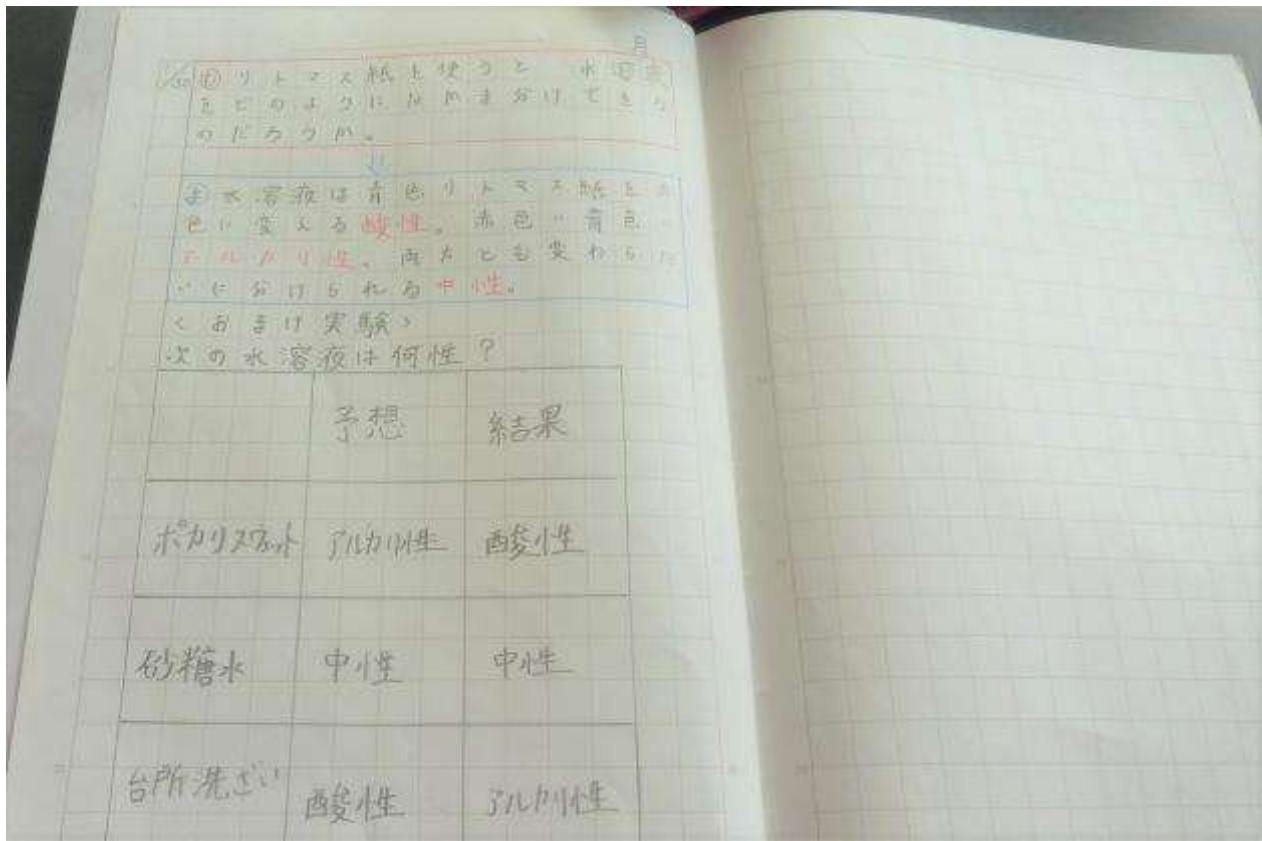 月
1/30 も リトマス紙を使うと 水溶液
をどのようになかま分けできる
のだろうか。
ま 水溶液は青色リトマス紙を赤
色に変える酸性。赤色〃青色〃
アルカリ性。両方とも変わらな
いに分けられる中性。
<おまけ実験>
次の水溶液は何性?
予想 結果
ポカリスウェット アルカリ性 酸性
砂糖水 中性 中性
台所洗ざい 酸性 アルカリ性